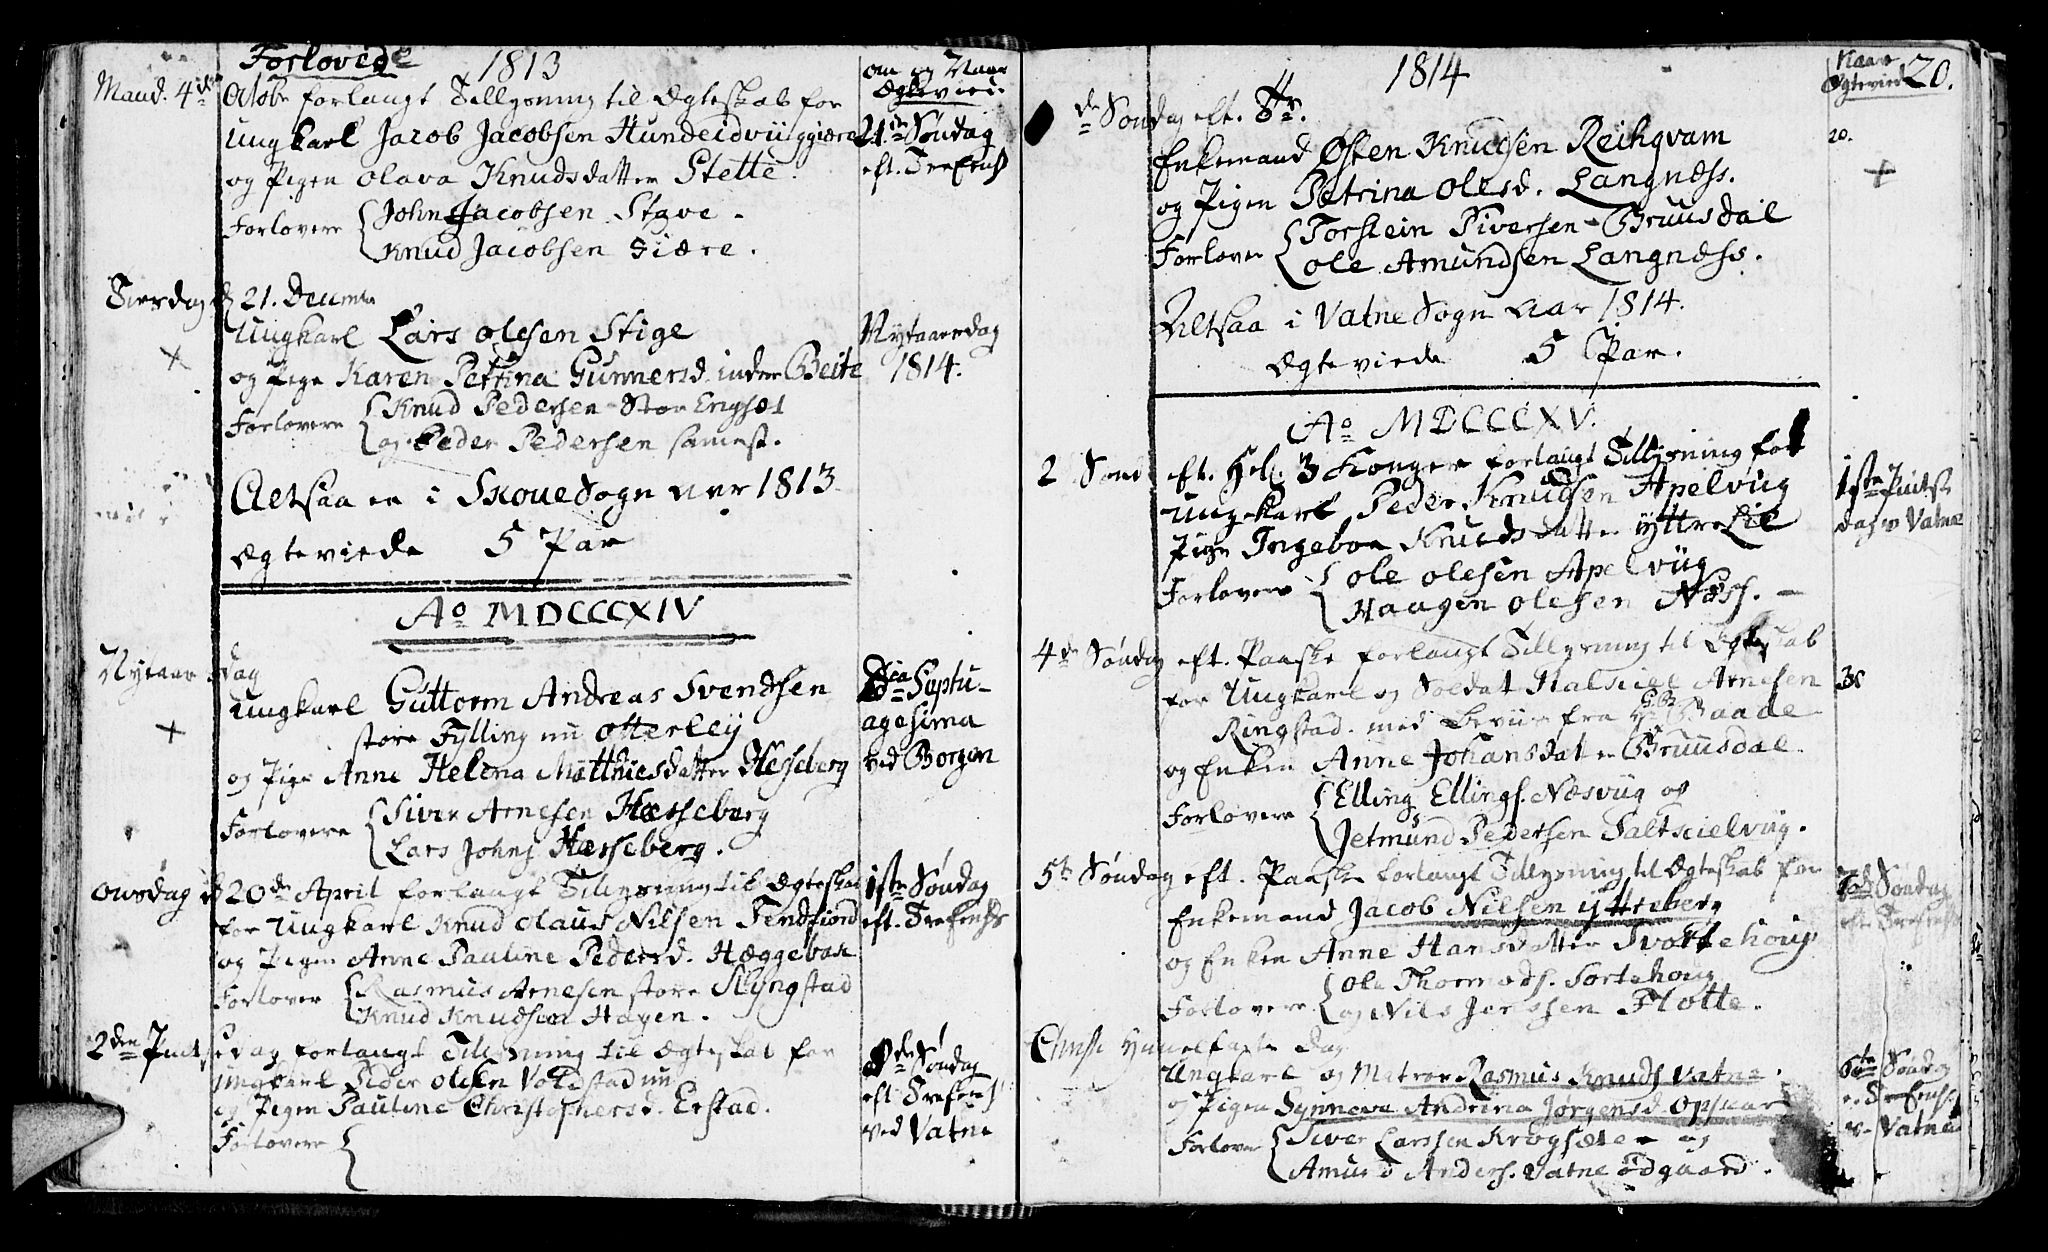 Forlovede 1813
om og Naar
Ægteviede
Mand. 4de Octobr forlangt Tillysning til Ægteskab for
Ungkarl Jacob Jacobsen Hundeidviig
og Pigen Olava Knudsdatter Stette.
Forlovere John Jacobsen Stave.
Knud Jacobsen Siære.
21de Søndag
eft. Trefens
Tirsdag d 21. Decembr
Ungkarl Lars Olesen Stige
og Pige Karen Pettina Gunnersd. indre Beite
Forlovere Knud Pedersen Stor Engset
og Peder Pedersen samest.
Nytaarsdag
1814.
Altsaa er i Skoue Sogn Aar 1813
Ægteviede 5 Par
Ao MDCCCXIV
Nytaarsdag
Ungkarl Guttorm Andreas Svendsen
store Fylling nu Otterley
og Pige Anne Helena Matthiesdatter Hesseberg
Forlovere Siver Arnesen Hæsseberg
Lars Johns Hæsseberg.
Dca Septu-
agesima
ved Borgen
Onsdag d 20de April forlangt Tillysning til Ægteskab
for Ungkarl Knud Olaus Nilsen Tendfiord
og Pigen Anne Pauline Pedersd. Hæggebak
Forlover Rasmus Arnesen store Slyngstad
Knud Knudsen Hagen.
1ste Søndag
eft. Trefens
2den Pintsedag forlangt Tillysning til Ægteskab for
Ungkarl Peder Olesen Voldstad nu
og Pigen Pauline Christophersd. Erstad.
Forlovere
de Søndag
eft. Trefens
ved Vatne
1814
Naar
Ægteviede
20.
de Søndag eft. Tr.
Enkemand Østen Knudsen Reihqvam
og Pigen Petrina Olesd. Langness.
Forlover Torstein Siversen Bruusdal
Ole Amundsen Langness.
20.
Altsaa i Vatne Sogn Aar 1814.
Ægteviede 5 Par.
Ao MDCCCXV.
2 Sønd eft. Hel. 3 Konger forlangt Tillysning for
Ungkarl Peder Knudsen Apelviig
Pige Ingebor Knudsdatter yttre Lie
Forlovere Ole Olesen Apelviig
Haagen Olesen Næss.
1ste Pintse
dag v Vatne
4de Søndag eft. Paaske forlangt Tillysning til Ægteskab
for Ungkarl og Soldat Arnesen
Ringstad med Beviis fra Hr Baade
og Enken Anne Johansdatter Bruusdal.
Forlovere Elling Ellings. Næsviig og
Jetmund Pedersen Saltscielviig.
5te Søndag eft. Paaske forlangt Tillysning til Ægteskab for
Enkemand Jacob Nilsen Ytteberg
og Enken Anne Hansdatter Svortehoug
Forlovere Ole Thormods. Sortehoug
og Nils Jenssen Flotte.
Søndag
eft. Trefens
Christi Himmelfarts Dag
Ungkarl og Matros Rasmus Knuds Vatne.
og Pigen Synneva Andrina Jørgensd. Opskar
Forlover Siver Larssen Krogsæter og
Amund Anders. Vatne ødgaard.
6te Søndag
e. Trefens.
v. Vatne